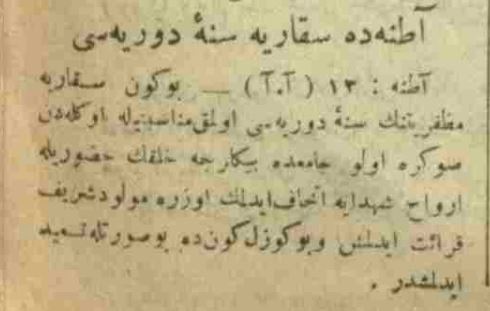 آطنه‌ده سقاریه سنهٔ دوریه‌سی
آطنه : ١٣ ( آ.آ ) — بوکون سقاریه
مظفریتنك سنهٔ دوریه‌سی اولمق مناسبتیله اوکله‌دن
صوکره اولو جامعده بیکلرجه خلقك حضوریله
ارواح شهدایه اتحاف ایدلمك اوزره مولود شریف
قرائت ایدلمش وبوکوزل کون ده بوصورتله تسعید
ایدلمشدر .